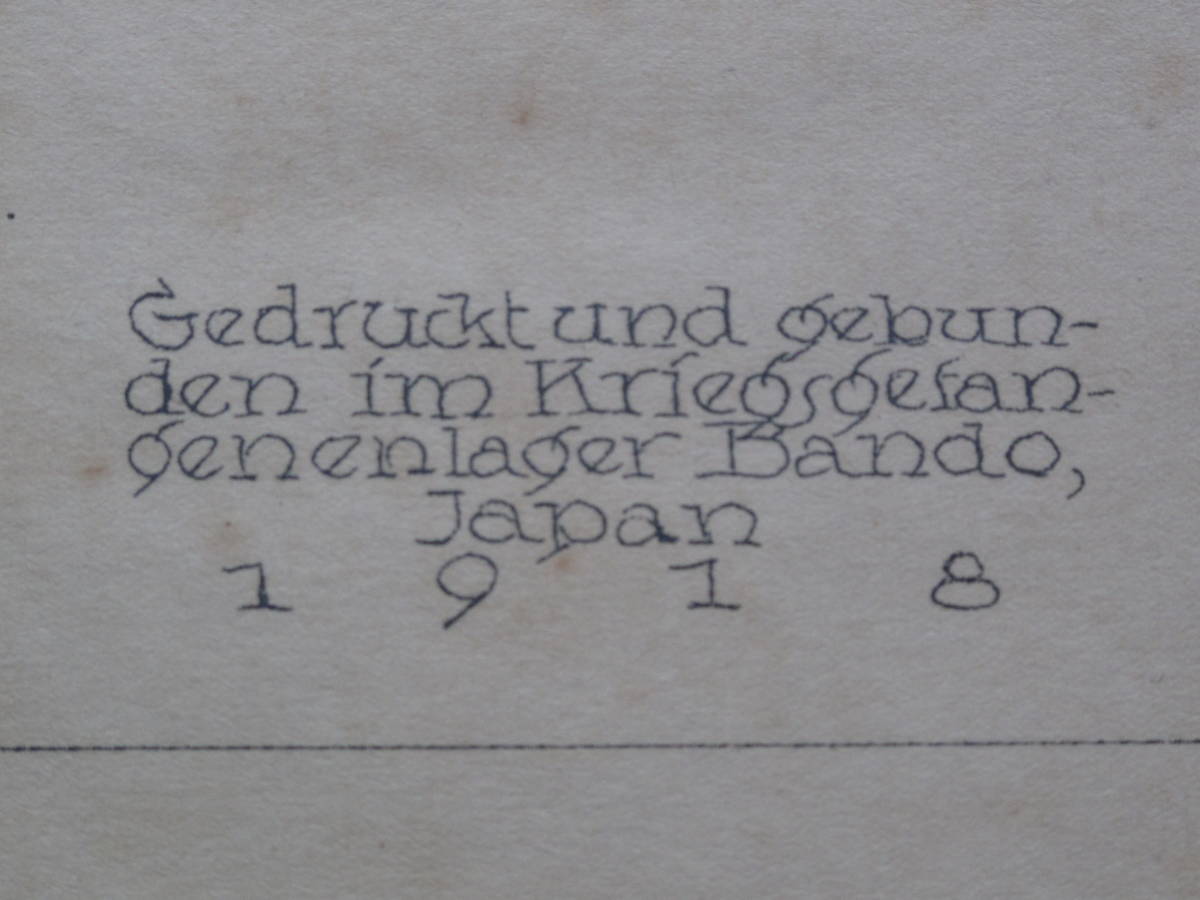 Gedruckt und gebun-
den im Kriegsgefan-
genenlager Bando,
Japan
1 9 1 8